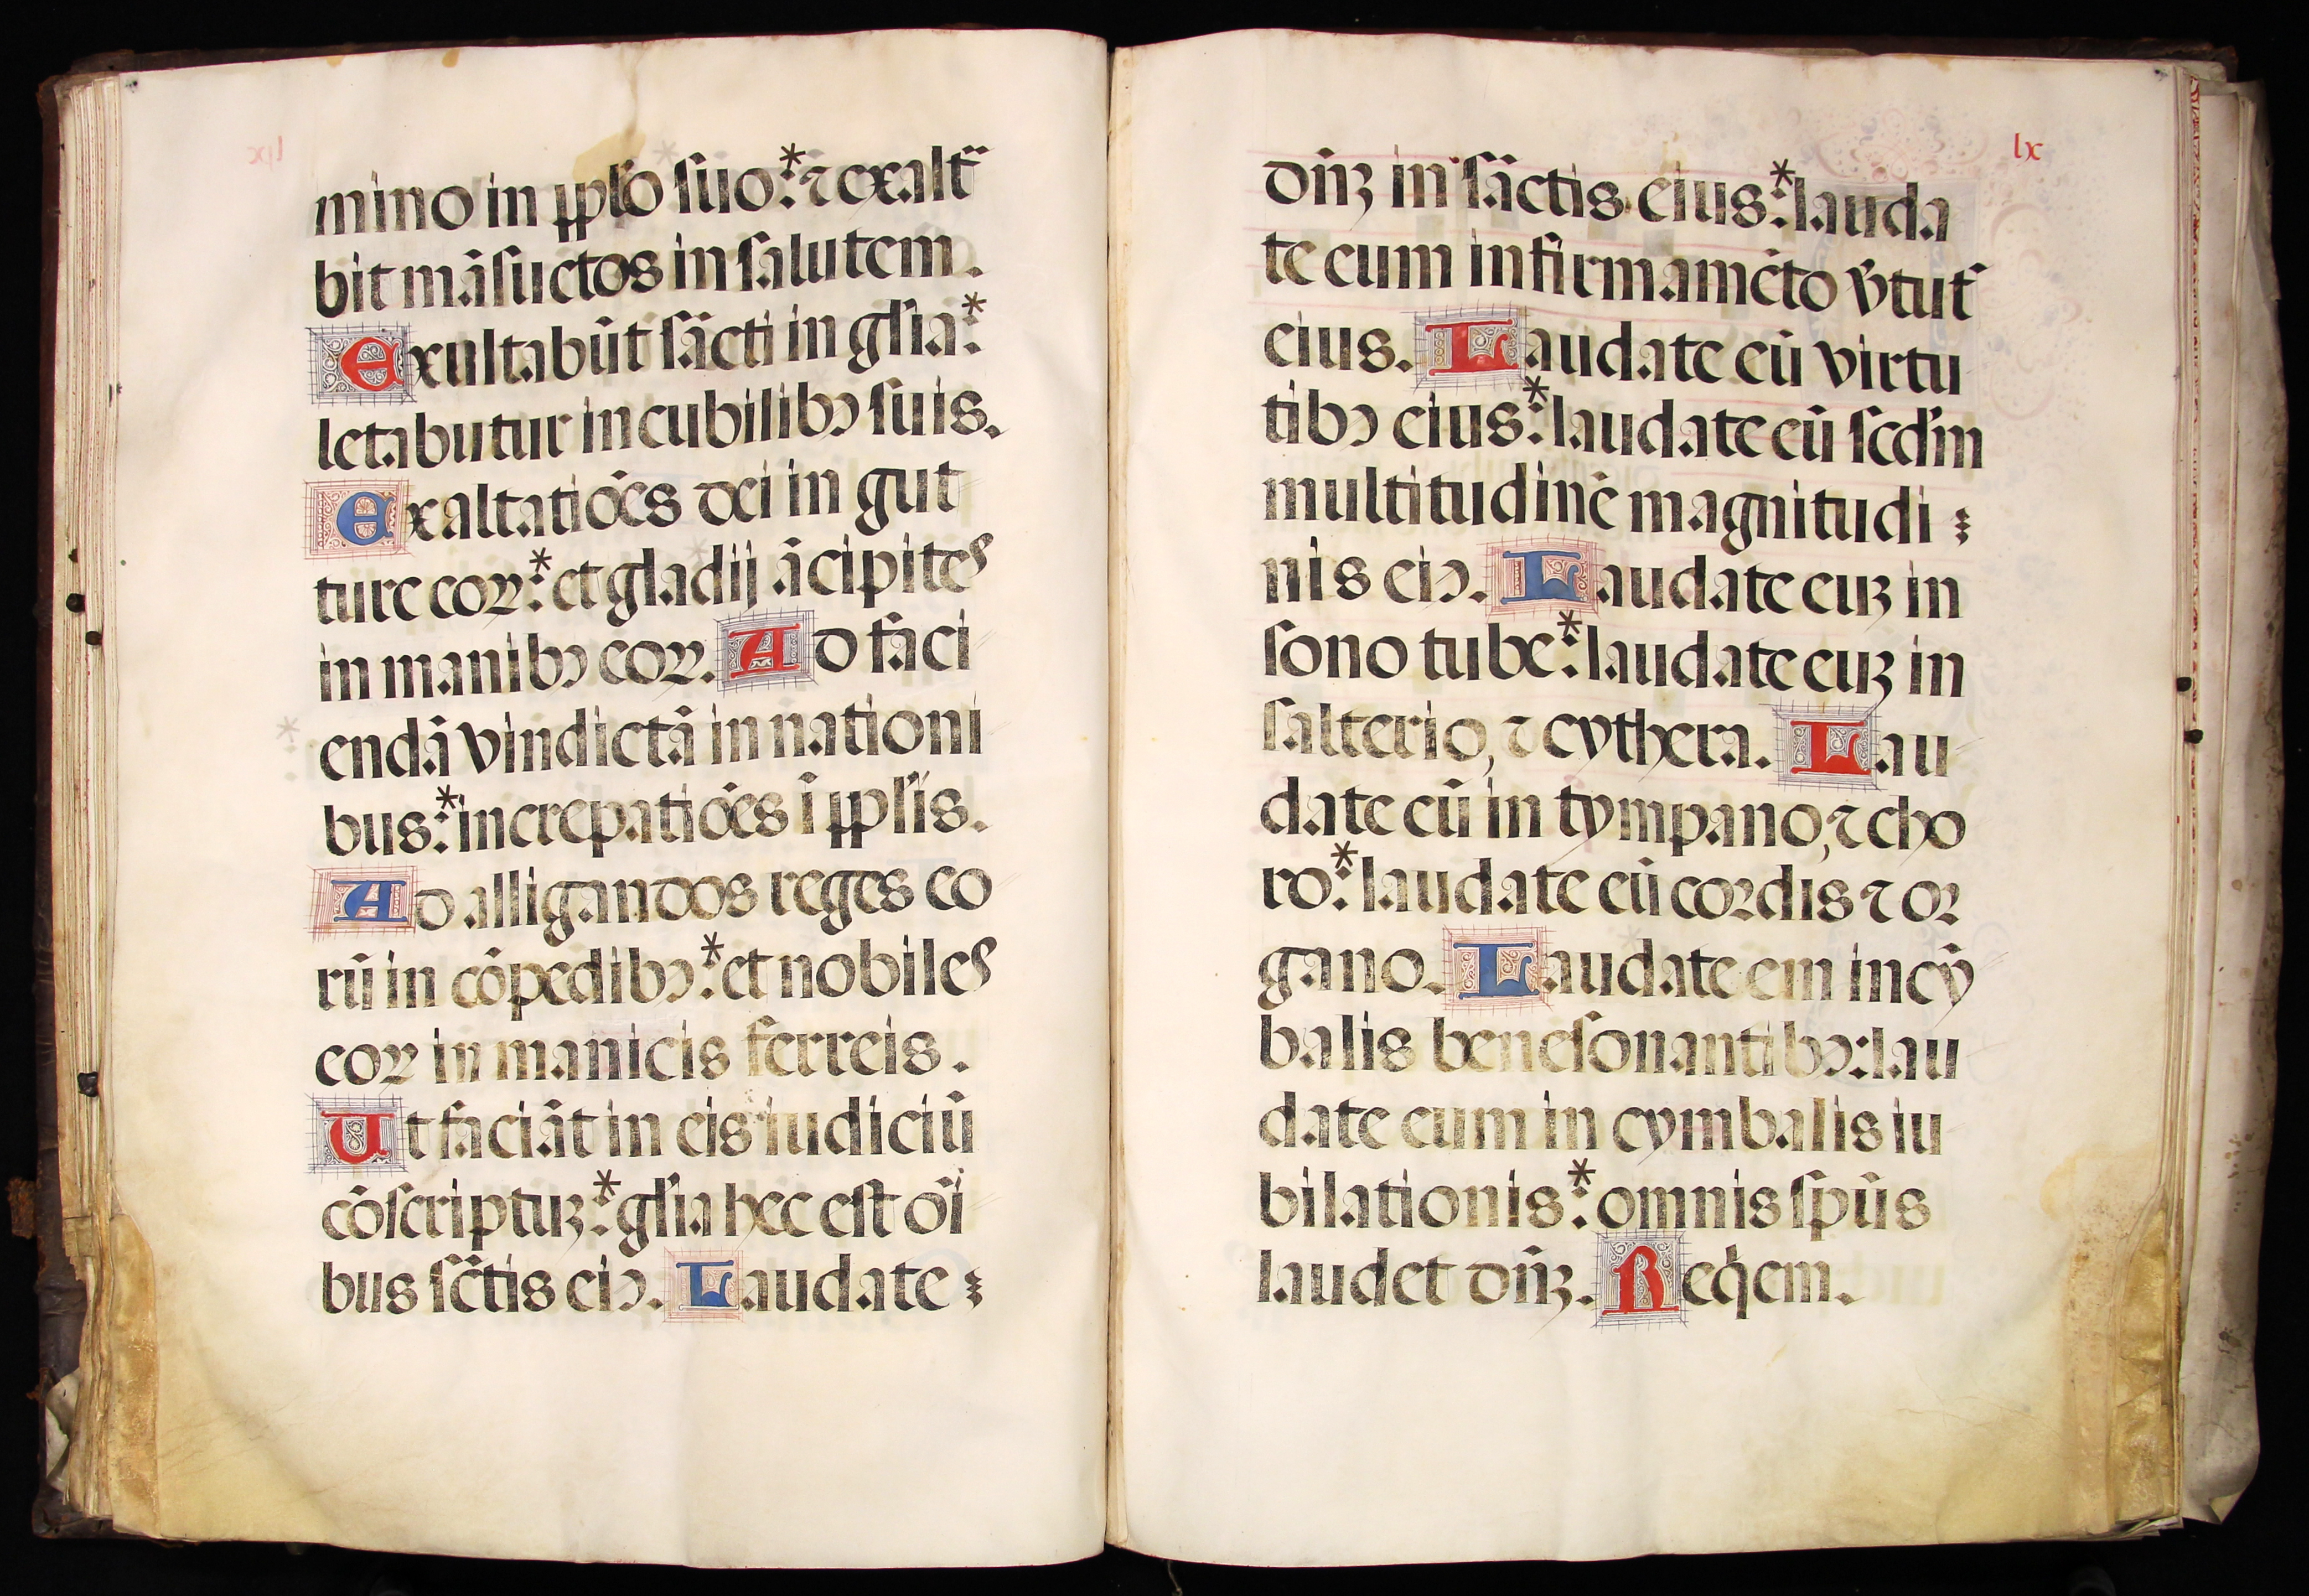 mino in pp̱lo ſuo: * ⁊ exalta
bit mãſuetos in ſalutem.
Exultabũt ſãcti in glia: *
letabutur in cubilibꝯ ſuis.
Exaltatiões dei in gut
ture eoꝝ: * et gladij ãcipites
in manibꝯ eoꝝ. Ad faci
endã vindictã in nationi
bus: * increpatiões ĩ pplis.
Ad alligandos reges eo
rũ in cõpedibꝯ: * et nobiles
eoꝝ in manicis ferreis.
Ut faciãt in eis iudiciũ
cõſcriptuꝫ: * glia hec eſt oĩ
bus ſc̃tis eiꝯ. Laudate
lx
dñꝫ in ſãctis eius: * lauda
te eum in firmamẽto v̉tut̉
eius. Laudate eũ virtu
tibꝯ eius: * laudate eũ ſcd̃m
multitudinẽ magnitudi
nis eiꝯ. Laudate euꝫ in
ſono tube: * laudate euꝫ in
ſalterio, ⁊ cythera. Lau
date eũ in tympano, ⁊ cho
ro: * laudate eũ coꝛdis ⁊ oꝛ
gano. Laudate em in cỹ
balis beneſonantibꝯ: lau
date eum in cymbalis iu
bilationis: * omnis ſpũs
laudet dñꝫ. Req̉em.